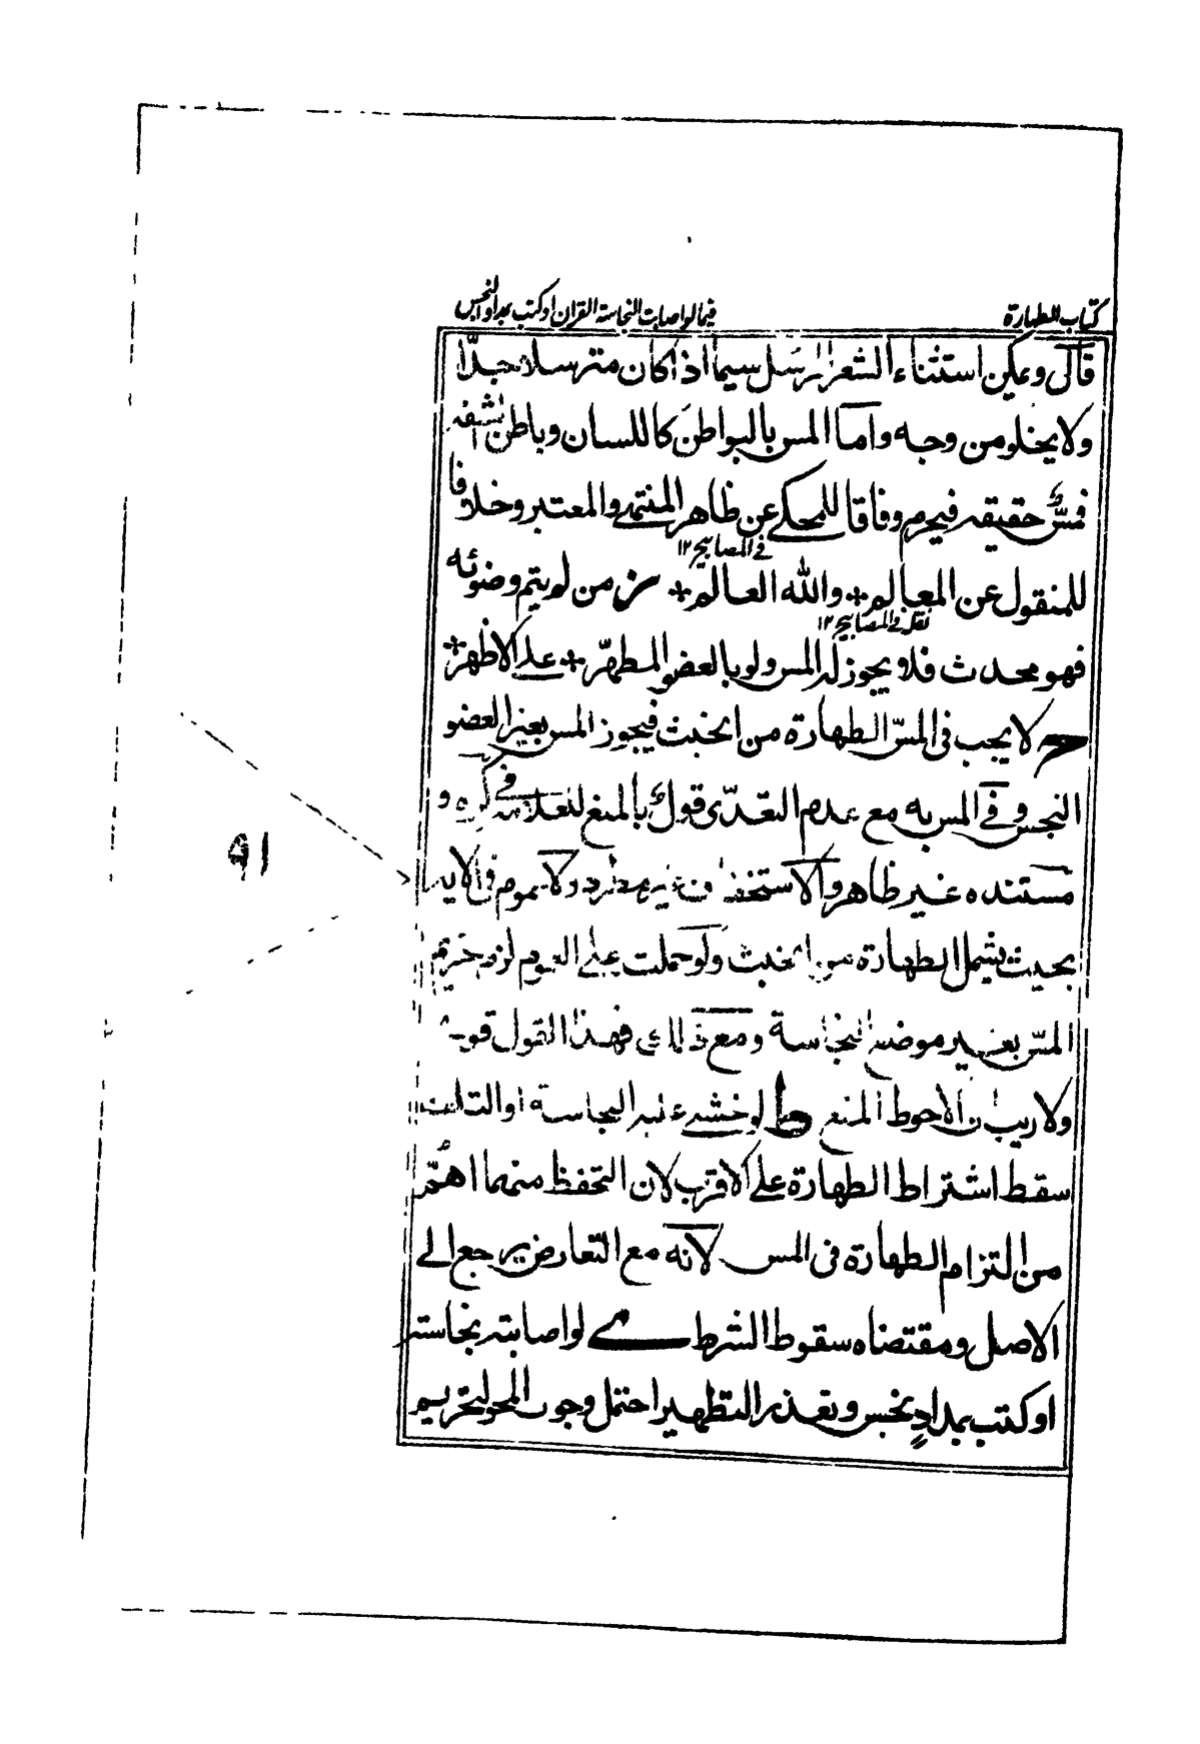 كتاب الطهارة
فيما لو اصابت النجاسة القران او كتب بمداد النجس
قال ويمكن استثناء الشعر المرسل سيما اذا كان مترسلا جدّا
ولا يخلو من وجه واما المس بالبواطن كاللسان وباطن الشفة
فمسٌّ حقيقة فيحرم وفاقا للمحكى عن ظاهر المنتهى والمعتبر وخلافا
فى المصابيح ١٢
للمنقول عن المعالم والله العالم ز من لم يتم وضوئه
نقله فى المصابيح ١٢
فهو محدث فلا يجوز له المس ولو بالعضو المطهّر على الاظهر
ح لا يجب فى المسّ الطهارة من الخبث فيجوز المس بغير العضو
النجس وفى المس به مع عدم التعدّى قولٌ بالمنع للعلامة فى كره و
مستنده غير ظاهر والاستخفاف غير مطرد ولا عموم فى الاية
بحيث يشمل الطهارة من الخبث ولو حملت على العموم لزم تحريم
المسّ بغير موضع النجاسة ومع ذلك فهذا القول قوى
ولا ريب ان الاحوط المنع ط لو خشى عليه النجاسة او التلف
سقط اشتراط الطهارة على الاقرب لان التحفظ منهما اهمّ
من التزام الطهارة فى المس لانه مع التعارض يرجع الى
الاصل ومقتضاه سقوط الشرط ى لو اصابته نجاسة
او كتب بمدادٍ نجس وتعذر التطهير احتمل وجوب المحو لتحريم
٩١